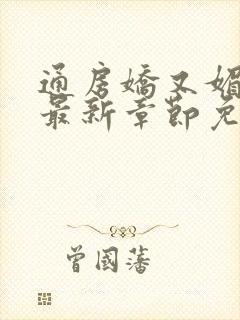 通房嬌又媚
最新章節免
曾國藩